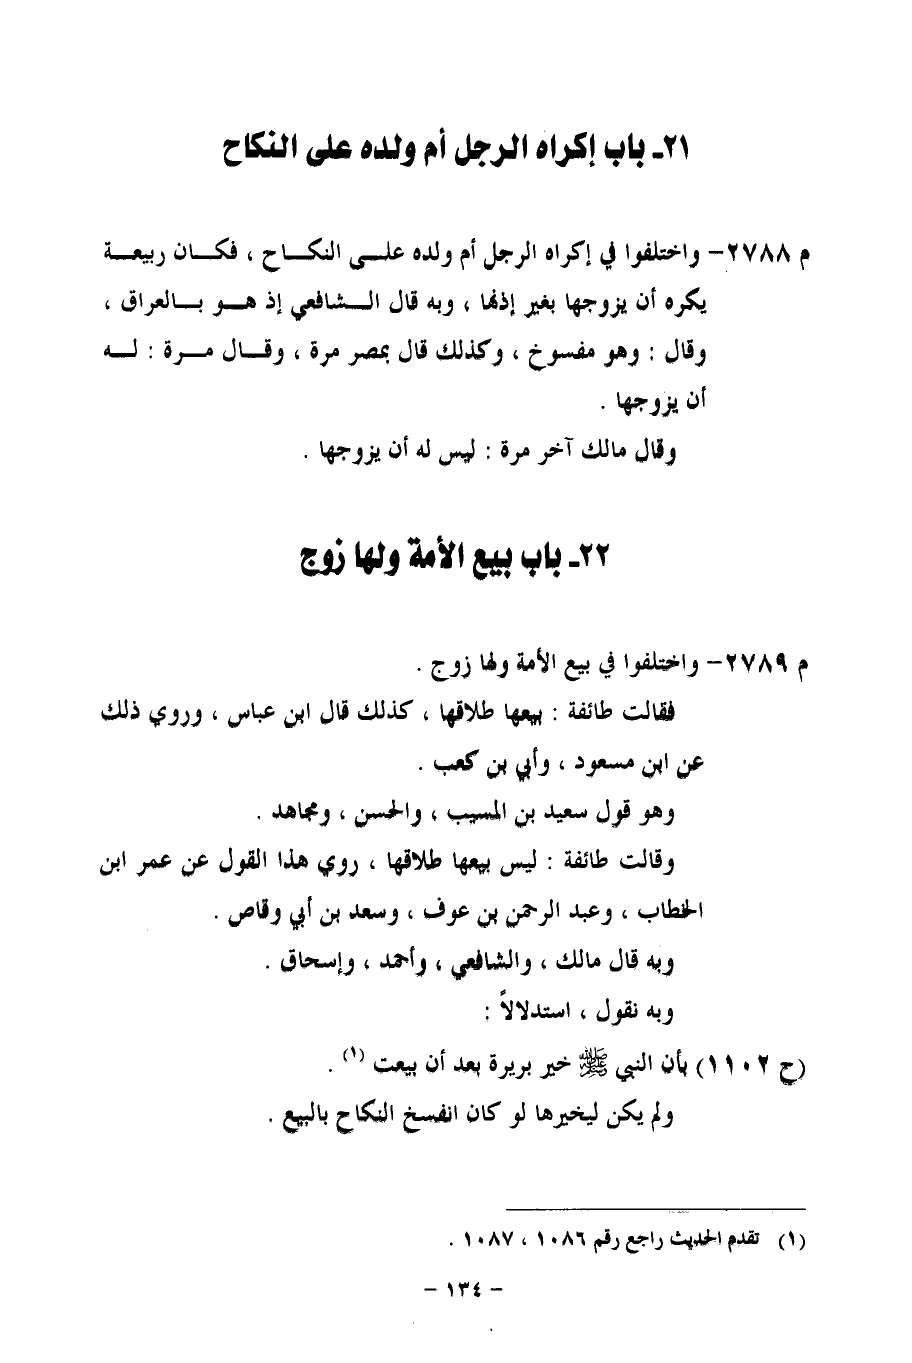 ٢١ـ باب إكراه الرجل أم ولده على النكاح
م ٢٧٨٨– واختلفوا في إكراه الرجل أم ولده علـى النكـاح ، فكـان ربيعـة
يكره أن يزوجها بغير إذنها ، وبه قال الـشافعي إذ هـو بـالعراق ،
وقال : وهو مفسوخ ، وكذلك قال بمصر مرة ، وقـال مـرة : لـه
أن يزوجها .
وقال مالك آخر مرة : ليس له أن يزوجها .
٢٢ـ باب بيع الأمة ولها زوج
م ٢٧٨٩– واختلفوا في بيع الأمة ولها زوج .
فقالت طائفة : بيعها طلاقها ، كذلك قال ابن عباس ، وروي ذلك
عن ابن مسعود ، وأبي بن كعب .
وهو قول سعيد بن المسيب ، والحسن ، ومجاهد .
وقالت طائفة : ليس بيعها طلاقها ، روي هذا القول عن عمر ابن
الخطاب ، وعبد الرحمن بن عوف ، وسعد بن أبي وقاص .
وبه قال مالك ، والشافعي ، وأحمد ، وإسحاق .
وبه نقول ، استدلالاً :
(ح ١١٠٢) بأن النبي ﷺ خير بريرة بعد أن بيعت (١) .
ولم يكن ليخيرها لو كان انفسخ النكاح بالبيع .
(١) تقدم الحديث راجع رقم ١٠٨٦ ، ١٠٨٧ .
– ١٣٤ –